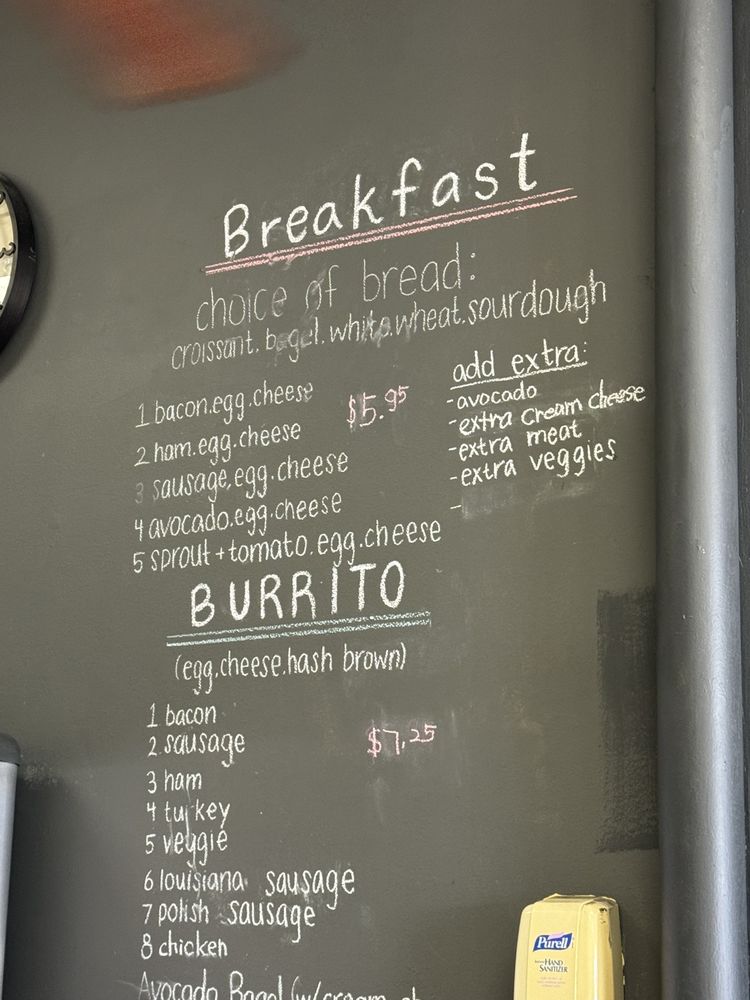 Breakfast
choice of bread:
croissant. bagel. white. wheat. sourdough
1 bacon.egg.cheese $5.95
2 ham.egg.cheese
3 sausage.egg.cheese
4 avocado.egg.cheese
5 sprout+tomato.egg.cheese
add extra:
-avocado
-extra cream cheese
-extra meat
-extra veggies
-
BURRITO
(egg.cheese.hash brown)
1 bacon
2 sausage $7.25
3 ham
4 turkey
5 veggie
6 louisiana sausage
7 polish sausage
8 chicken
Avocado Bagel (w/cream
Purell
HAND
SANITIZER